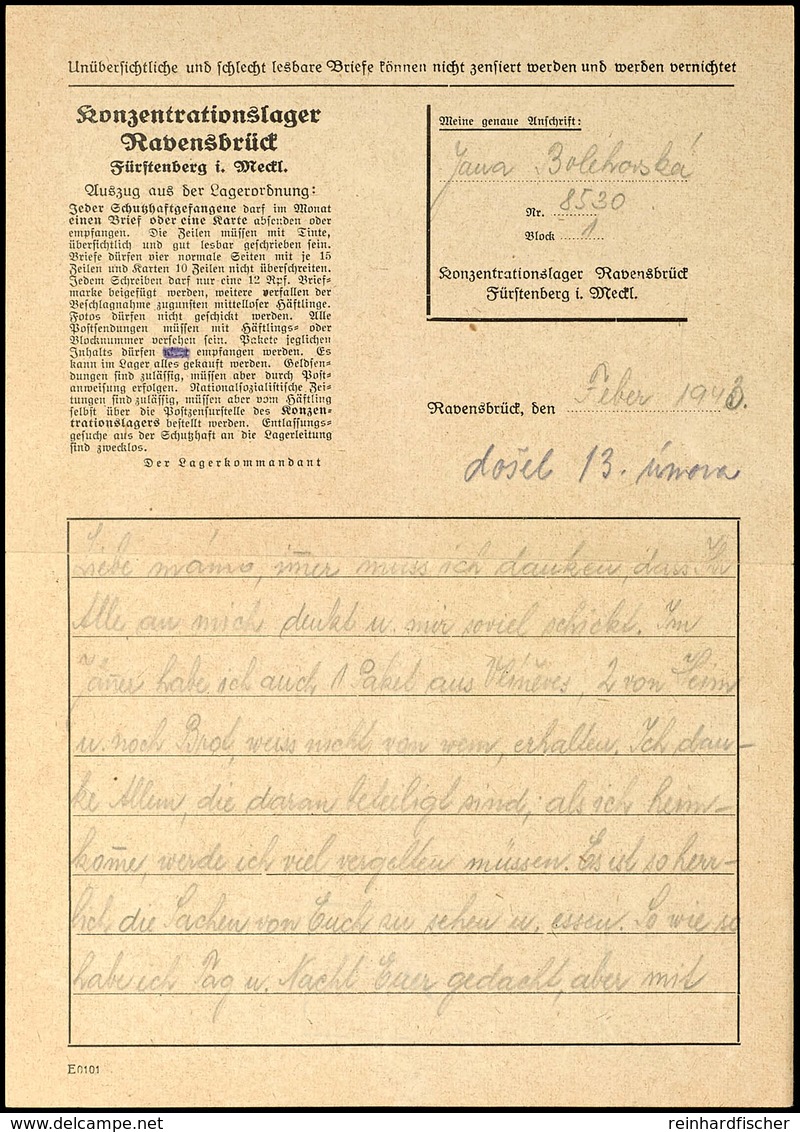 Unübersichtliche und schlecht lesbare Briefe können nicht zensiert werden und werden vernichtet
Konzentrationslager
Ravensbrück
Fürstenberg i. Meckl.
Auszug aus der Lagerordnung:
Jeder Schutzhaftgefangene darf im Monat
einen Brief oder eine Karte absenden oder
empfangen. Die Zeilen müssen mit Tinte,
übersichtlich und gut lesbar geschrieben sein.
Briefe dürfen vier normale Seiten mit je 15
Zeilen und Karten 10 Zeilen nicht überschreiten.
Jedem Schreiben darf nur eine 12 Rpf. Brief-
marke beigefügt werden, weitere verfallen der
Beschlagnahme zugunsten mittelloser Häftlinge.
Fotos dürfen nicht geschickt werden. Alle
Postsendungen müssen mit Häftlings- oder
Blocknummer versehen sein. Pakete jeglichen
Inhalts dürfen empfangen werden. Es
kann im Lager alles gekauft werden. Geldsen-
dungen sind zulässig, müssen aber durch Post-
anweisung erfolgen. Nationalsozialistische Zei-
tungen sind zulässig, müssen aber vom Häftling
selbst über die Postzensurstelle des Konzen-
trationslagers bestellt werden. Entlassungs-
gesuche aus der Schutzhaft an die Lagerleitung
sind zwecklos.
Der Lagerkommandant
Meine genaue Anschrift:
Jana Bolehovská
Nr. 8530
Block 1
Konzentrationslager Ravensbrück
Fürstenberg i. Meckl.
Ravensbrück, den Feber 1943.
došel 13. února
Liebe mámo, im̄er muss ich danken, dass Ihr
Alle an mich denkt u. mir soviel schickt. Im
Jäner habe ich auch 1 Paket aus 2 von Heim
u. noch Brot, weiss nicht von wem, erhalten. Ich dan-
ke Allen, die daran beteiligt sind; als ich heim-
kom̄e, werde ich viel vergelten müssen. Es ist so herr-
lich die Sachen von Euch zu sehen u. essen. So wie so
habe ich Tag u. Nacht Euer gedacht, aber mit
E0101
reinhardfischer